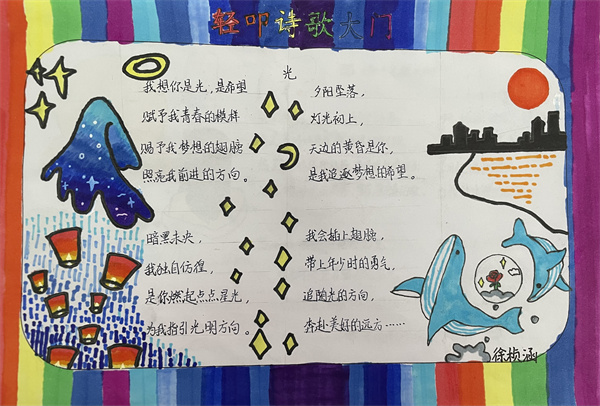 轻叩诗歌大门
光
我想你是光,是希望
赋予我青春的模样
赐予我梦想的翅膀
照亮我前进的方向。
暗黑未央,
我独自彷徨,
是你燃起点点星光,
为我指引光明方向。
夕阳坠落,
灯光初上,
天边的黄昏是你,
是我追逐梦想的希望。
我会插上翅膀,
带上年少时的勇气,
追随光的方向,
奔赴美好的远方……
徐桢涵